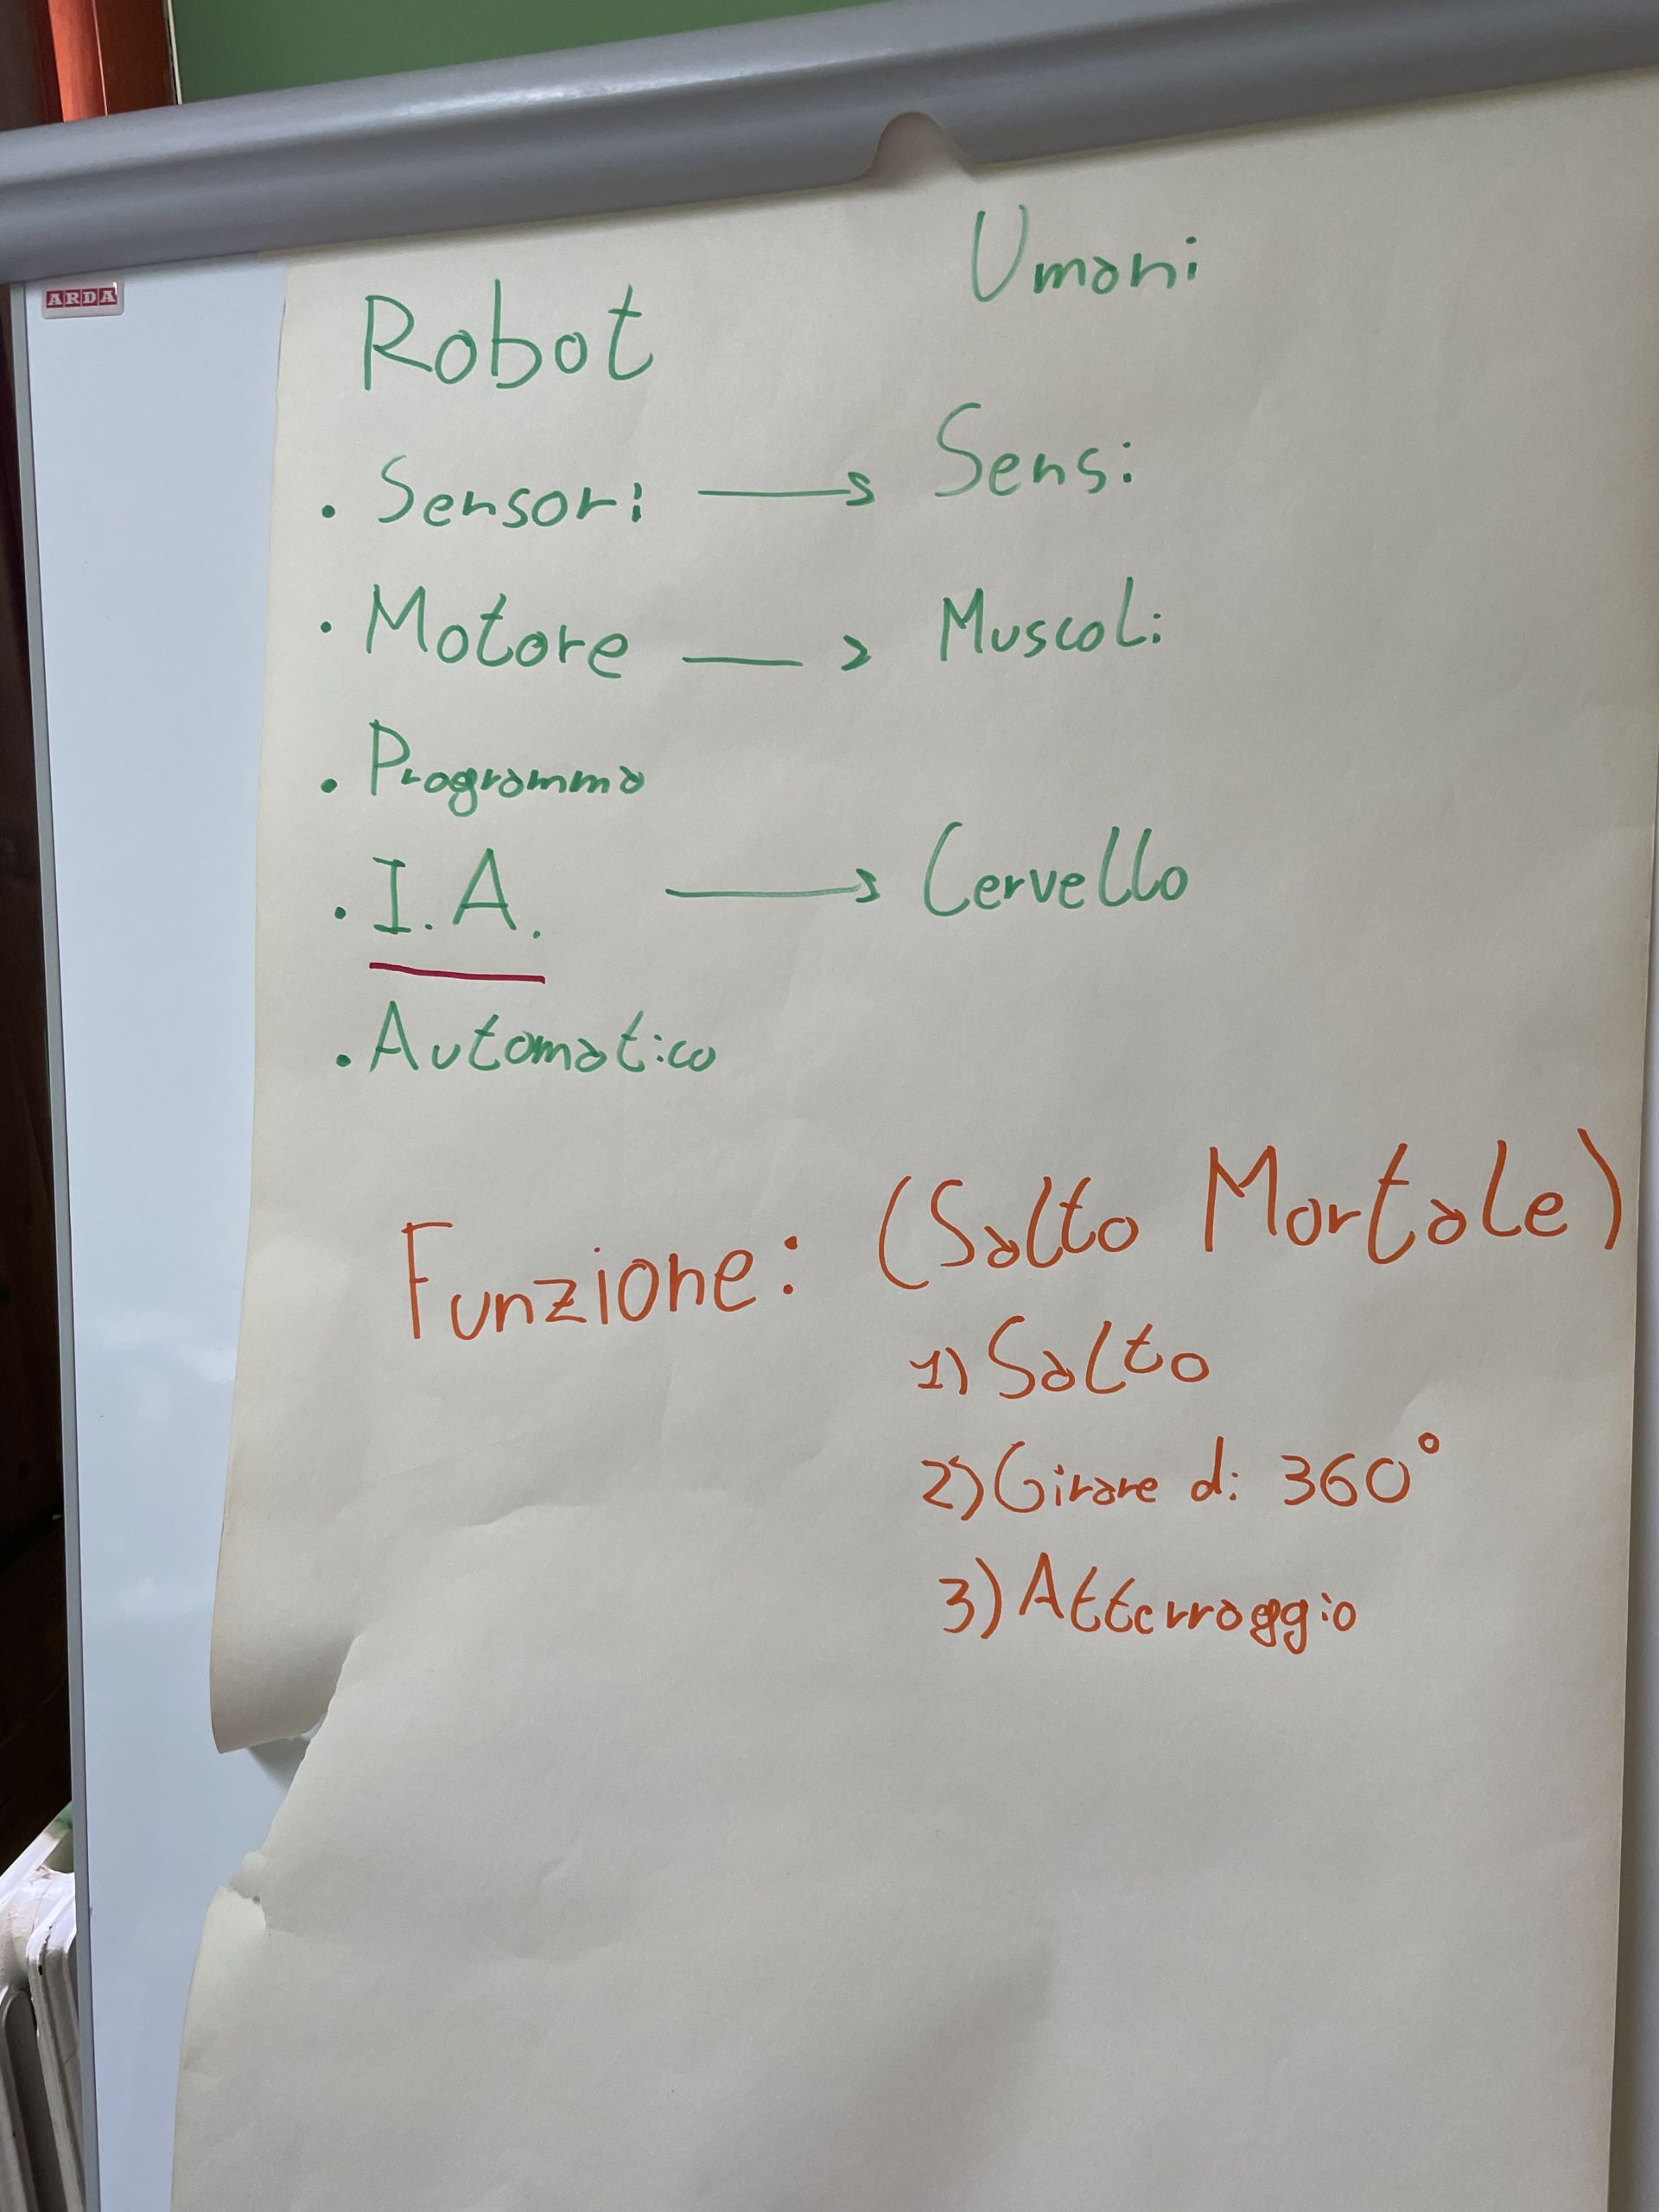 ARDA
Robot Umani
. Sensori → Sensi
. Motore → Muscoli
. Programma
. I.A. → Cervello
. Automatico
Funzione: (Salto Mortale)
1) Salto
2) Girare di 360°
3) Atterraggio